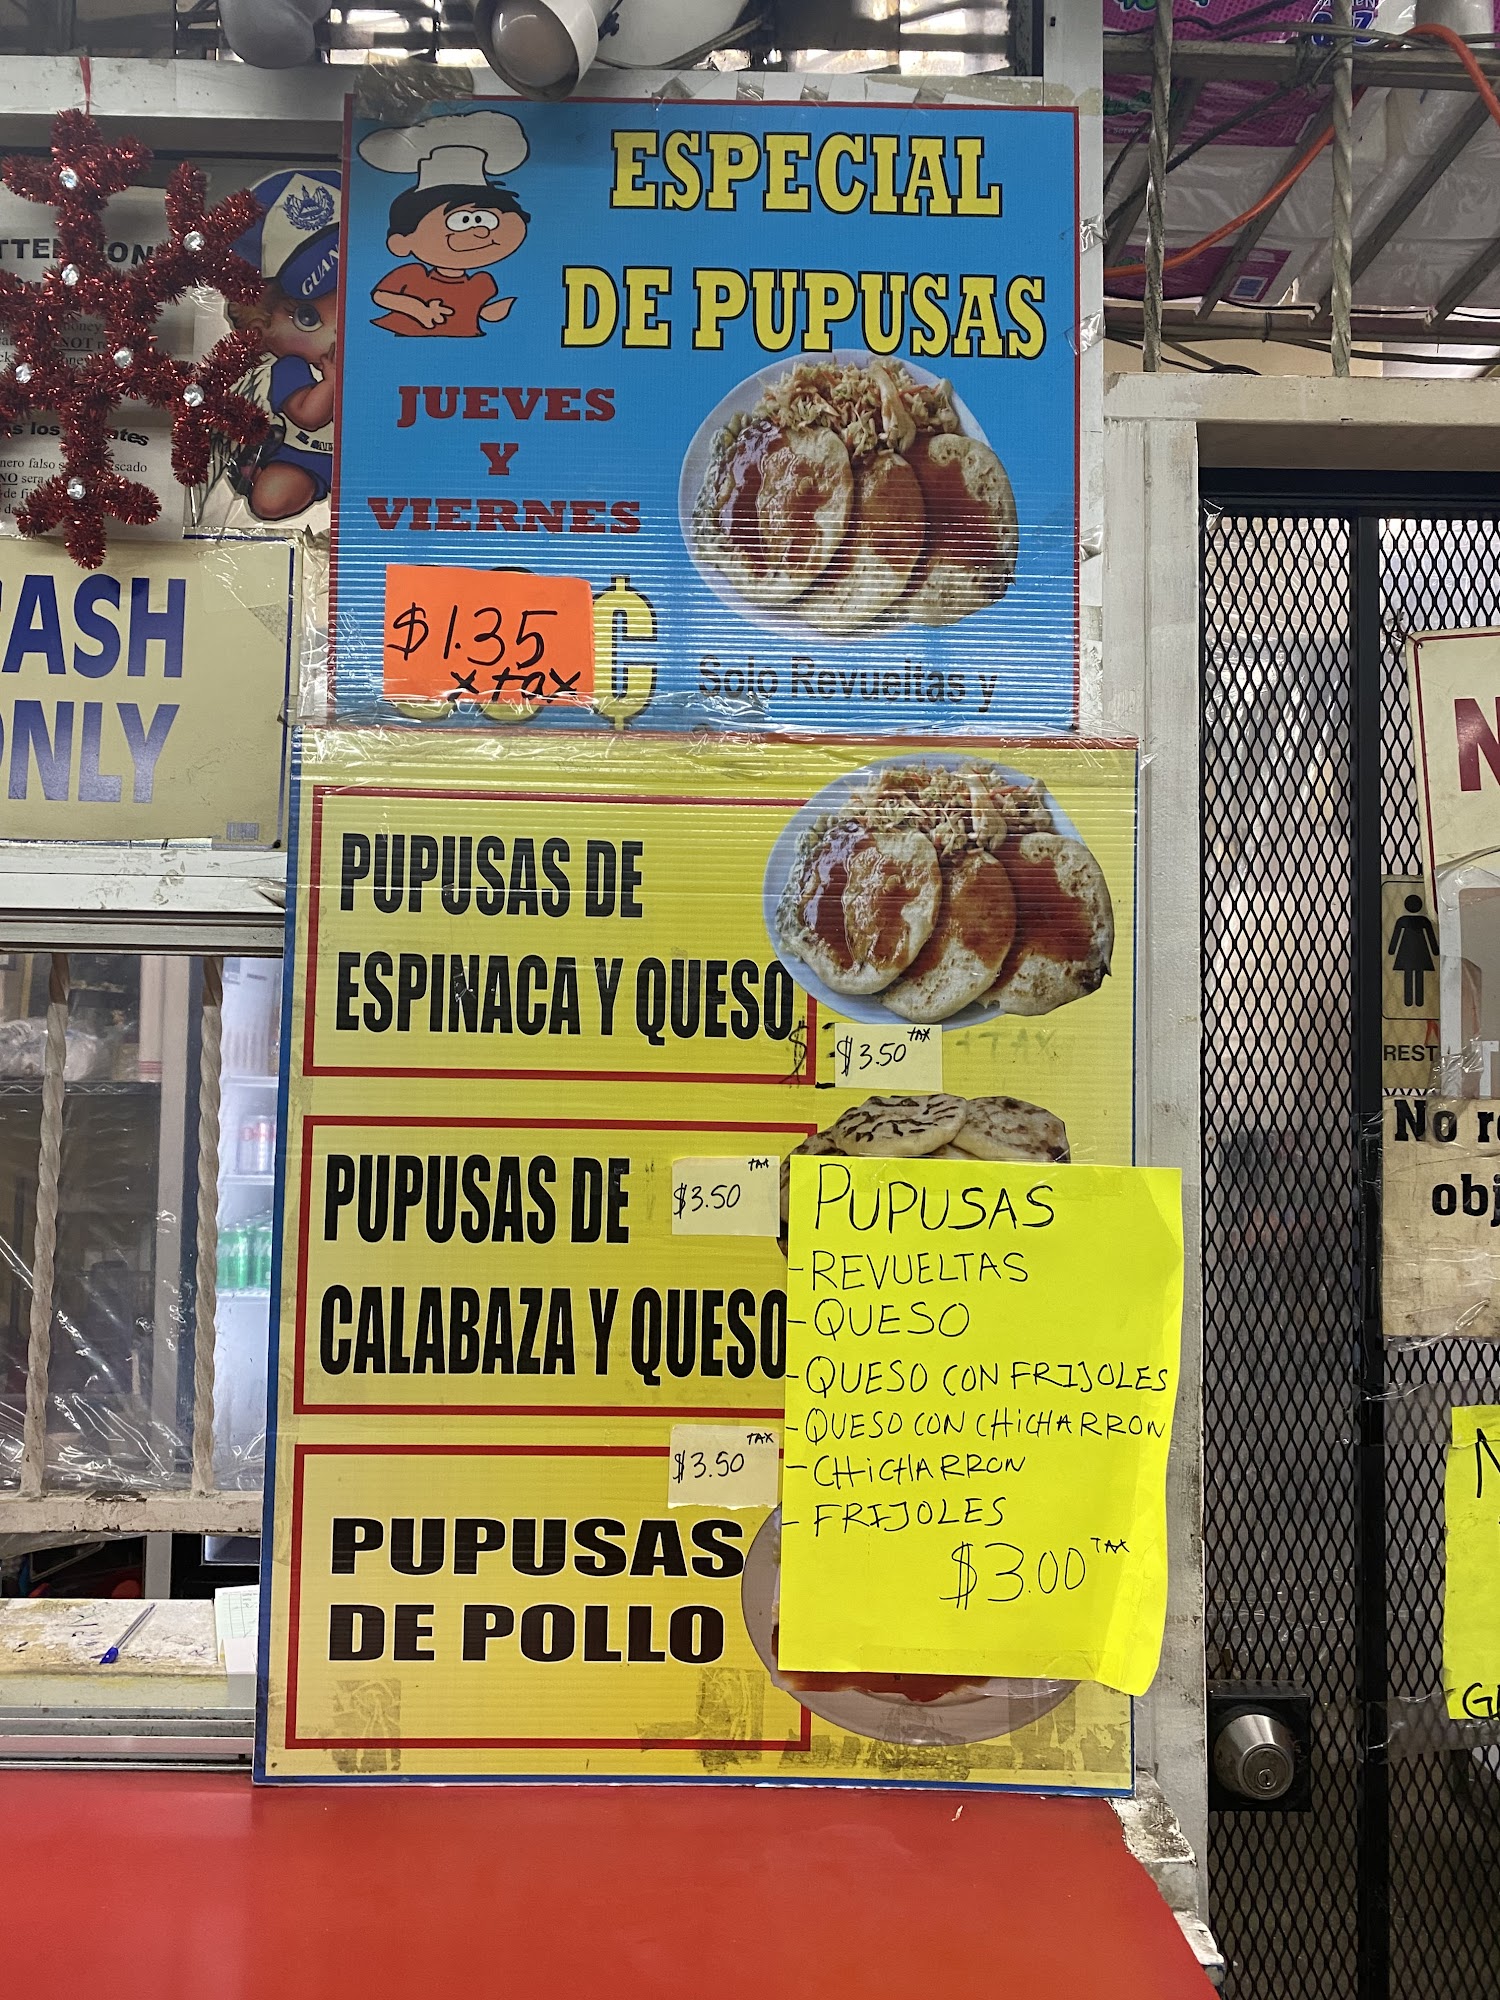 ESPECIAL
DE PUPUSAS
JUEVES
Y
VIERNES
$1.35
x tax
¢
Solo Revueltas y
PUPUSAS DE
ESPINACA Y QUESO
$3.50 TAX
PUPUSAS DE
CALABAZA Y QUESO
$3.50 TAX
PUPUSAS
DE POLLO
$3.50 TAX
PUPUSAS
-REVUELTAS
-QUESO
-QUESO CON FRIJOLES
-QUESO CON CHiCHARRON
-CHiCHARRON
-FRIJOLES
$3.00 TAX
ASH
ONLY
GUAN
NOT
NO
REST
No
obj